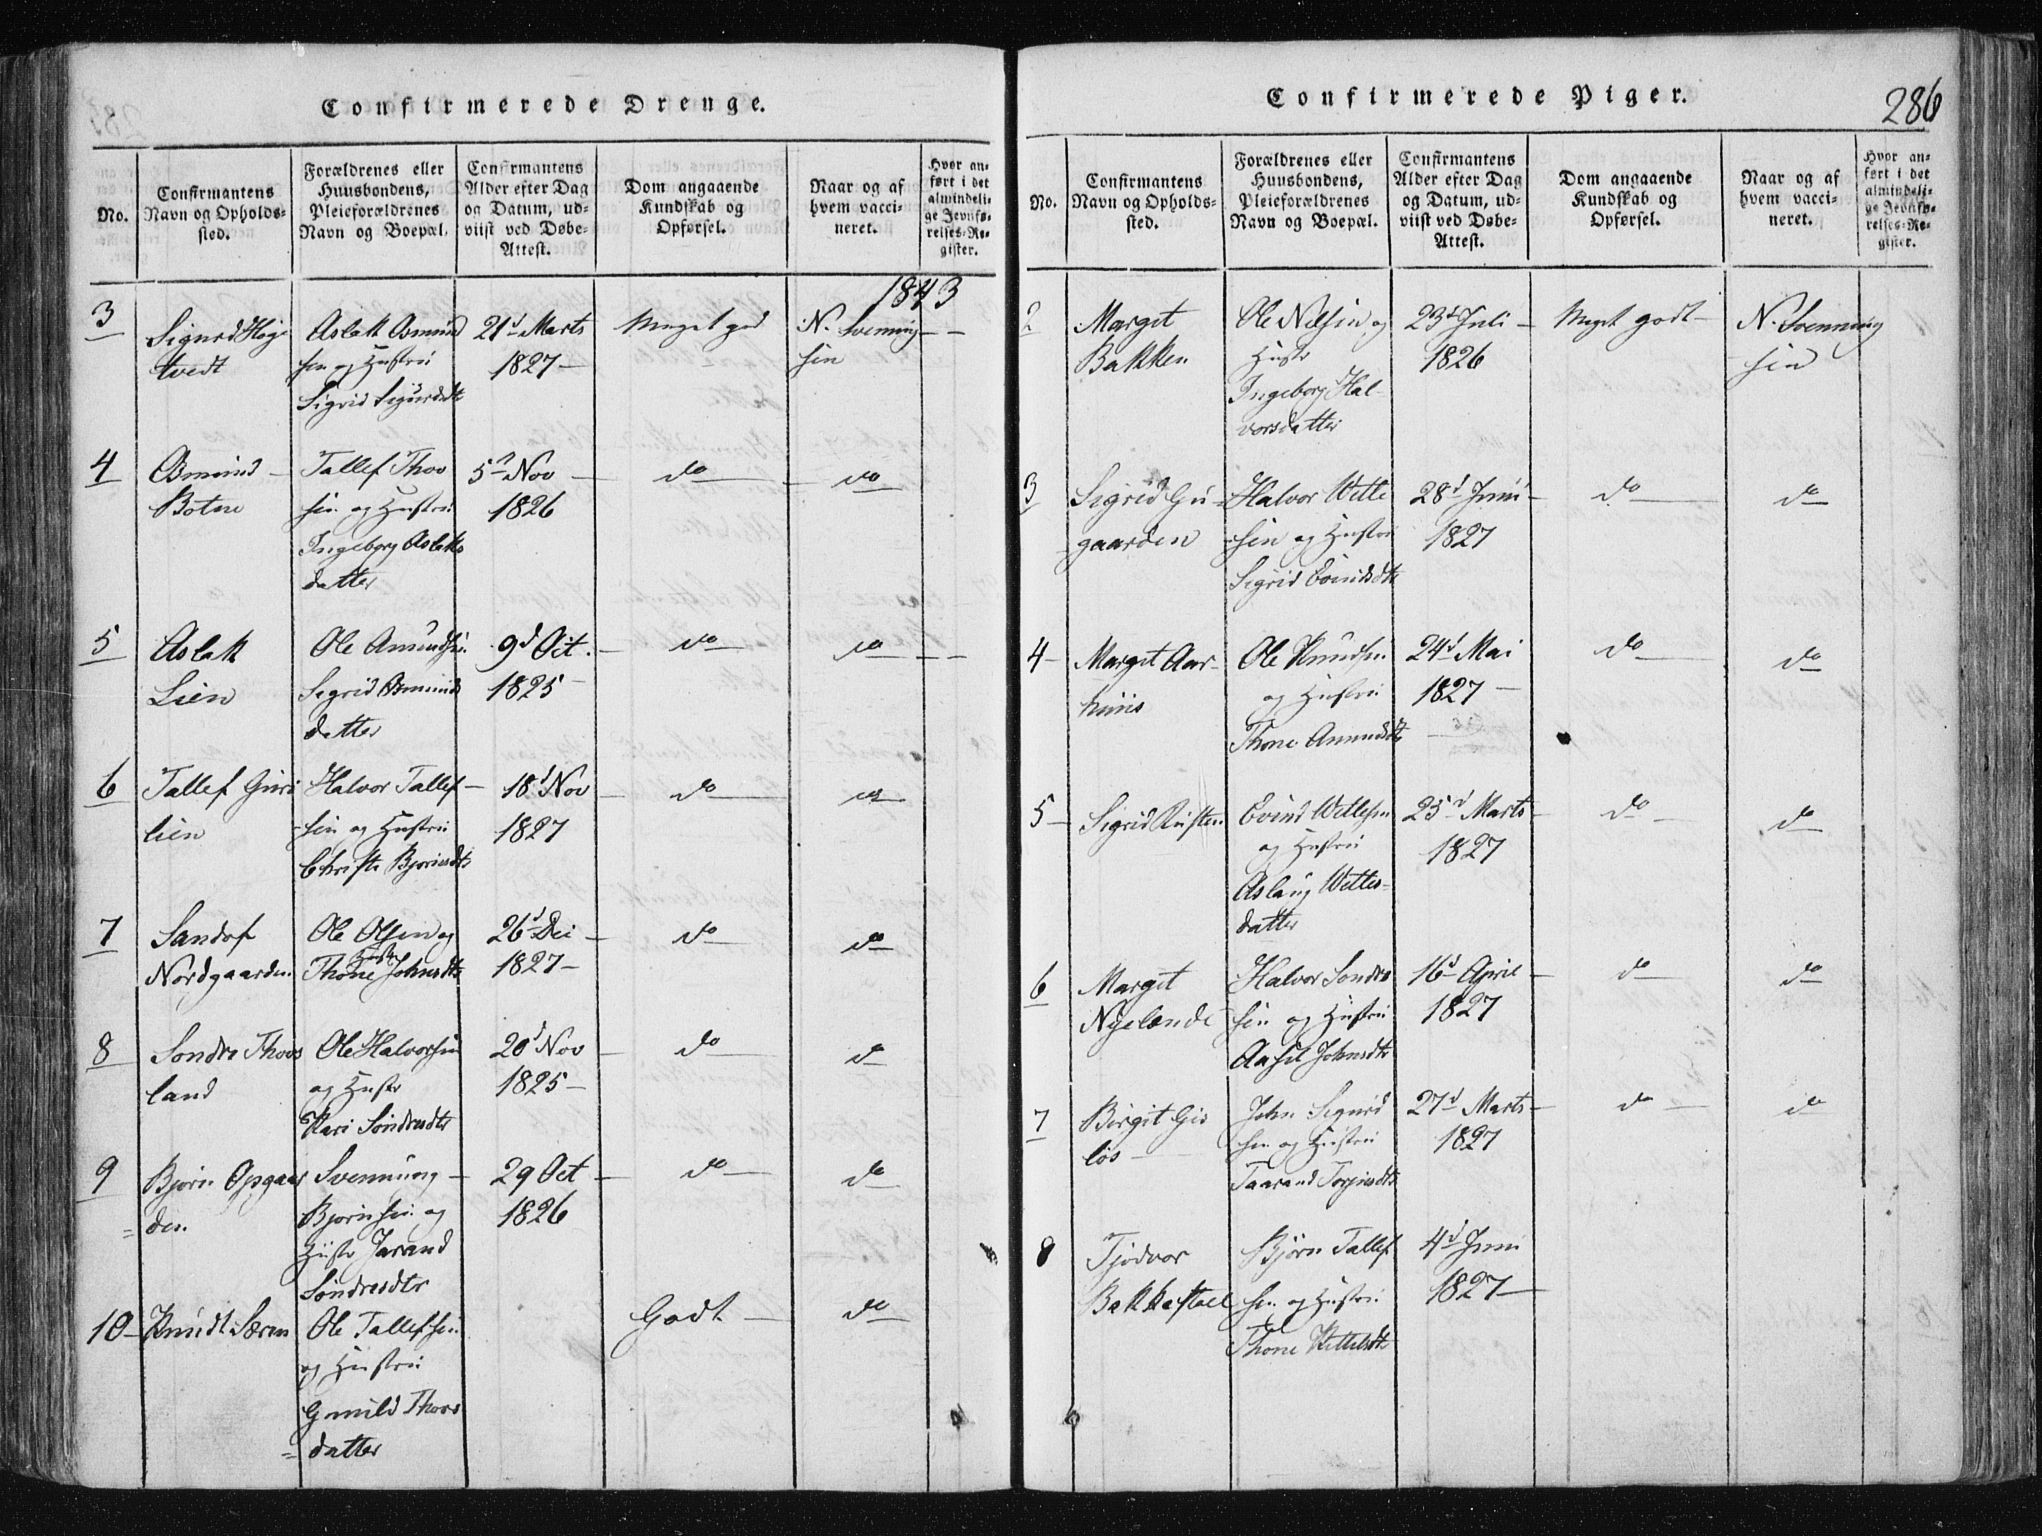 Confirmerede Drenge.
No.
Confirmantens
Navn og Opholds-
sted.
Forældrenes eller
Huusbondens,
Pleieforældrenes
Navn og Boepæl.
Confirmantens
Alder efter Dag
og Datum, ud-
viist ved Døbe-
Attest.
Dom angaaende
Kundskab og
Opførsel.
Naar og af
hvem vacci-
neret.
Hvor an-
ført i det
almindeli-
ge Jevnfø-
relses-Re-
gister.
1843
3
Sigurd Høg
tvedt
Aslak Asmund
sen og Hustru
Sigrid Sigurdsdtr
21d Marts
1827
Meget god
N. Svenning
sen
4
Asmund
Botne
Tallef Thov
sen og Hustru
Ingeborg Aslaks
datter
5t Nov
1826
do
do
5
Aslak
Lien
Ole Amundsen
Sigrid Asmunds
datter
9d Oct.
1825
do
do
6
Tallef Guri
lien
Halvor Tallef
sen og Hustru
Christi Bjørnsdtr
18d Nov
1827
do
do
7
Sandof
Nordgaarden
Ole Olsen og
Hustr
Thone Johnsdtr
26d Dec
1827
do
do
8
Sondre Thovs
land
Ole Halvorsen
og Hustr
Kari Sondresdtr
20d Nov
1825
do
do
9
Bjørn Opgaar
den
Svennung
Bjørnsen og
Hustr Jarand
Sondresdtr
29 Oct
1826
do
do
10
Knudt Særen
Ole Tallefsen
og Hustru
Gunild Thovs
datter
Godt
do
Confirmerede Piger.
286
No.
Confirmantens
Navn og Opholds-
sted.
Forældrenes eller
Huusbondens,
Pleieforældrenes
Navn og Boepæl.
Confirmantens
Alder efter Dag
og Datum, ud-
viist ved Døbe-
Attest.
Dom angaaende
Kundskab og
Opførsel.
Naar og af
hvem vacci-
neret.
Hvor an-
ført i det
almindeli-
ge Jevnfø-
relses-Re-
gister.
2
Margit
Bakken
Ole Nilsen og
Hustr
Ingeborg Hal
vorsdatter
23d Juli
1826
Meget godt
N. Svenning
sen
3
Sigrid Gu
gaarden
Halvor Wetle
sen og Hustru
Sigrid Evindsdtr
28d Juni
1827
do
do
4
Margit Aar-
huus
Ole Knudsen
og Hustru
Thone Amundsdtr
24d Mai
1827
do
do
5
Sigrid
Evind Wetlesen
og Hustru
Aslaug Wetles-
datter
25d Marts
1827
do
do
6
Margit
Nyelande
Halvor Sondre
sen og Hustru
Aasil Johnsdtr
16d April
1827
do
do
7
Birgit Gis
løs
John Sigurd
sen og Hustru
Taarand Torjusdtr
27d Marts
1827
do
do
8
Tjodvor
Bakkastael
Bjørn Tallef
sen og Hustru
Thone Kittelsdtr
4d Juni
1827